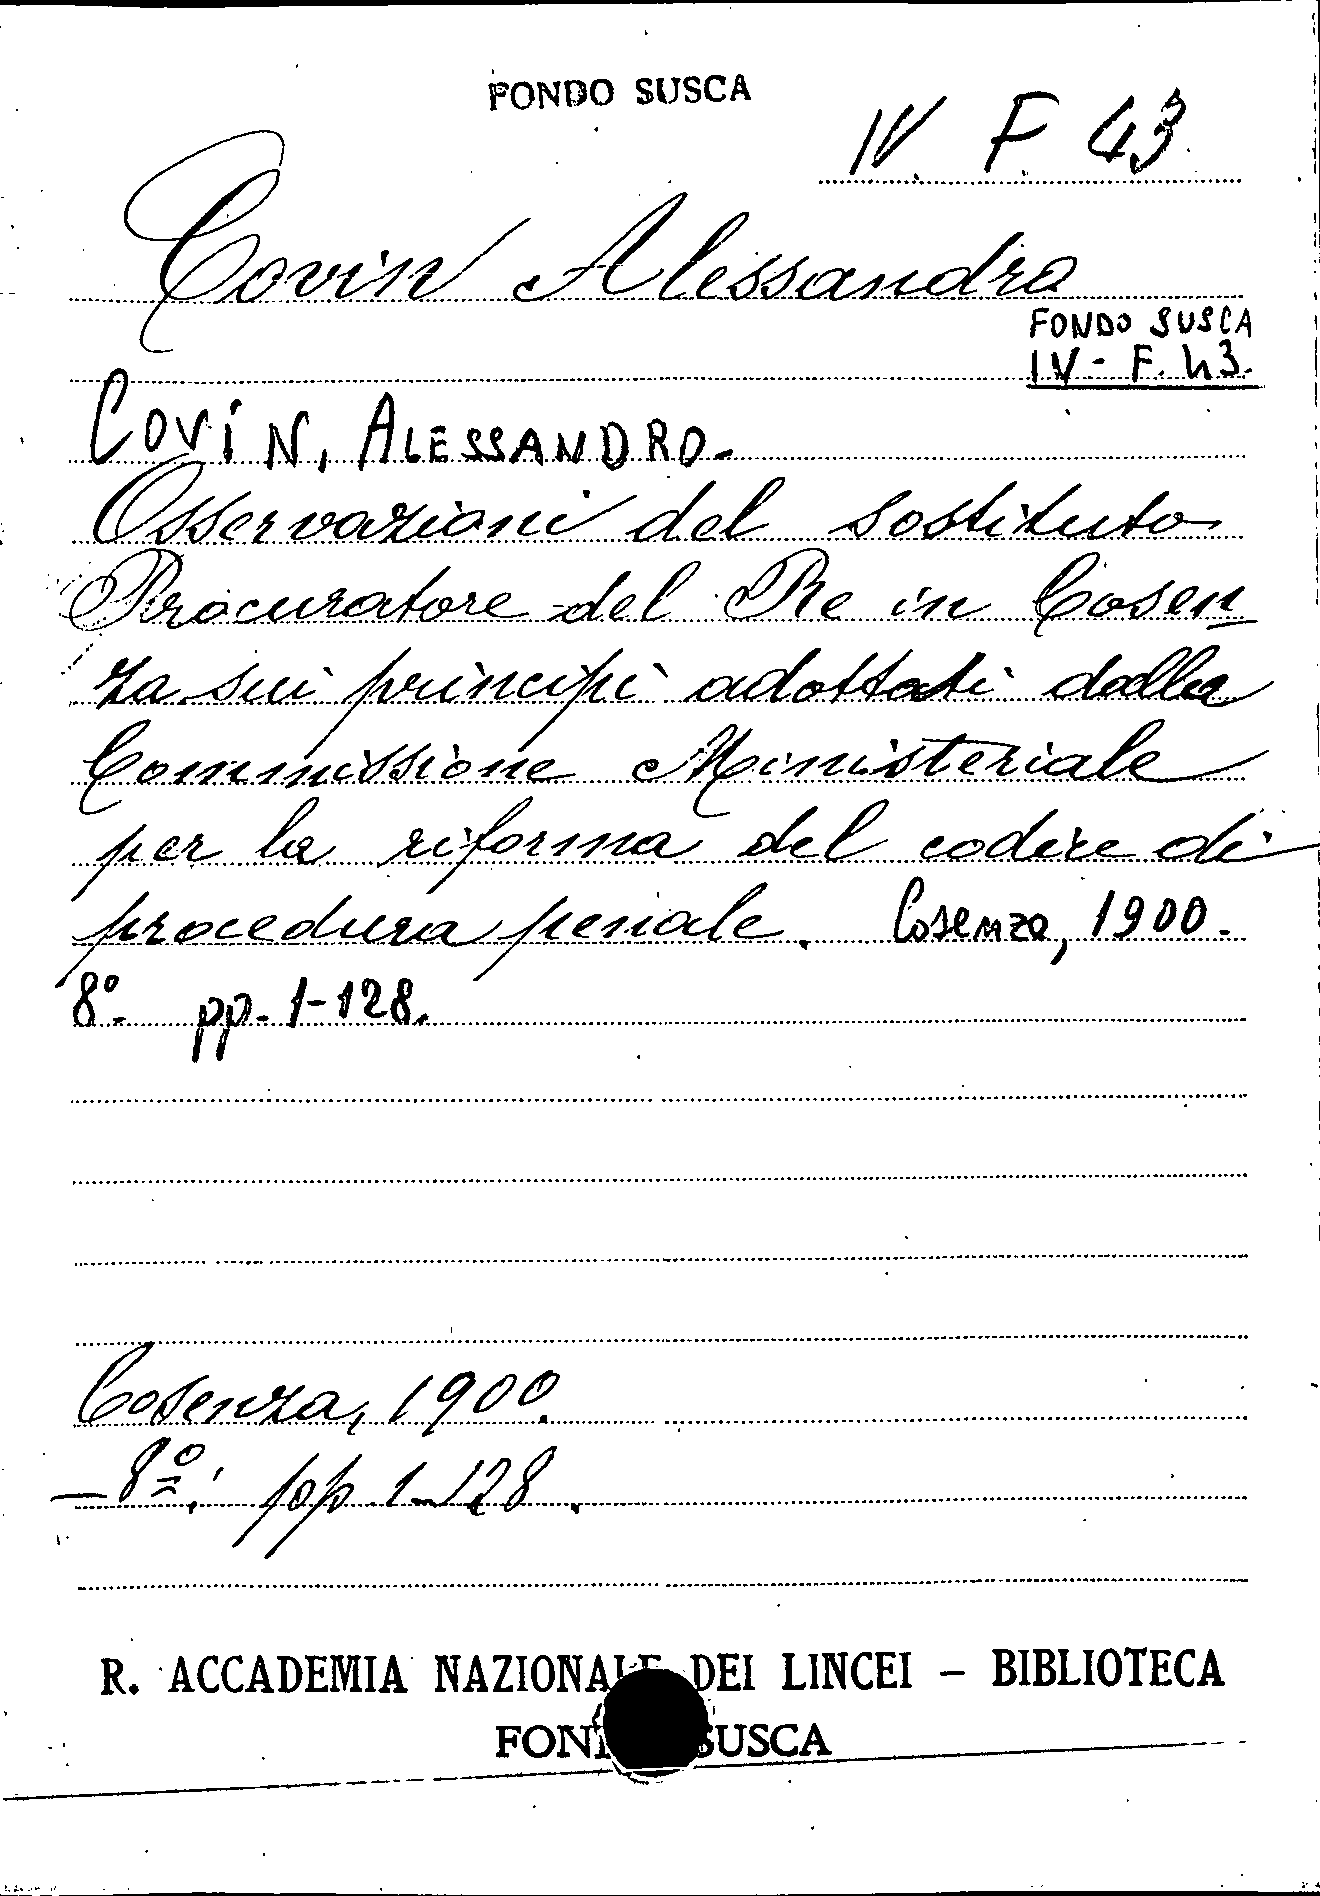 FONDO SUSCA
IV. F. 43
Covin Alessandro
FONDO SUSCA
IV - F. 43.
COVIN, ALESSANDRO.
Osservazioni del sostituto
Procuratore del Re in Cosen
za sui principi adottati dalla
Commissione Ministeriale
per la riforma del codice di
procedura penale. Cosenza, 1900.
8º. pp. 1-128.
Cosenza, 1900.
- 8º. pp. 1-128.
R. ACCADEMIA NAZIONALE DEI LINCEI – BIBLIOTECA
FONDO SUSCA